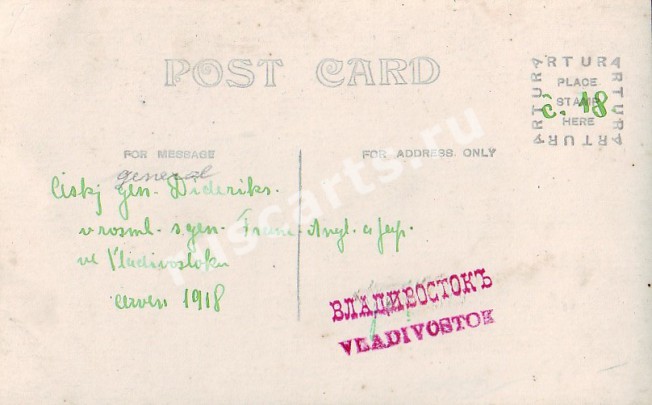 POST CARD
ARTURA
ARTURA
ARTURA
ARTURA
PLACE
STAMP
HERE
č. 18
FOR MESSAGE
FOR ADDRESS ONLY
general
gen. Dideriks.
v rozml. s gen. Franc. Angl. a Jap.
ve Vladivostoku
červen 1918
ВЛАДИВОСТОКЪ
VLADIVOSTOK
ruscarts.ru